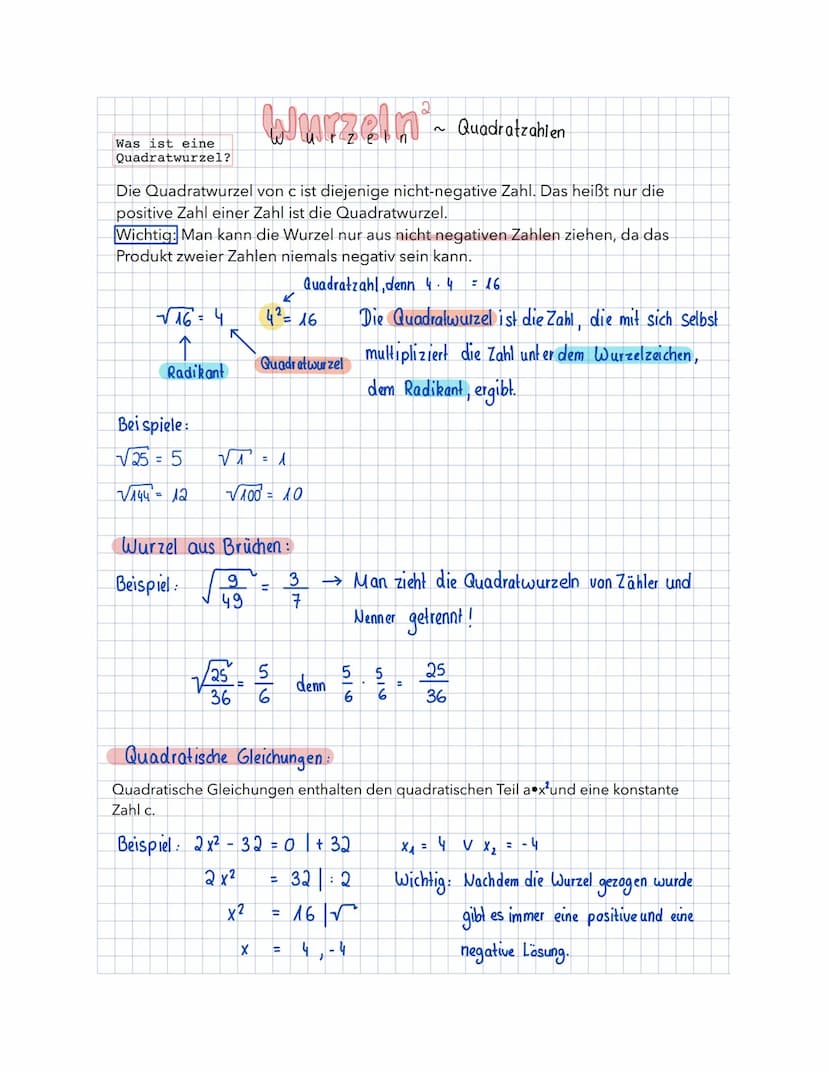 Wurzeln²
Wurzeln ~ Quadratzahlen
Was ist eine
Quadratwurzel?
Die Quadratwurzel von c ist diejenige nicht-negative Zahl. Das heißt nur die
positive Zahl einer Zahl ist die Quadratwurzel.
Wichtig: Man kann die Wurzel nur aus nicht negativen Zahlen ziehen, da das
Produkt zweier Zahlen niemals negativ sein kann.
Quadratzahl, denn 4 · 4 = 16
√16 = 4 4² = 16 Die Quadratwurzel ist die Zahl, die mit sich selbst
Quadratwurzel multipliziert die Zahl unter dem Wurzelzeichen,
Radikant
dem Radikant, ergibt.
Beispiele:
√25 = 5 √1 = 1
√144 = 12 √100 = 10
Wurzel aus Brüchen:
Beispiel: √9/49 = 3/7 → Man zieht die Quadratwurzeln von Zähler und
Nenner getrennt!
√25/36 = 5/6 denn 5/6 · 5/6 = 25/36
Quadratische Gleichungen:
Quadratische Gleichungen enthalten den quadratischen Teil a•x² und eine konstante
Zahl c.
Beispiel: 2x² - 32 = 0 | + 32 x₁ = 4 ∨ x₂ = -4
2x² = 32 | : 2 Wichtig: Nachdem die Wurzel gezogen wurde
x² = 16 | √ gibt es immer eine positive und eine
x = 4, -4 negative Lösung.